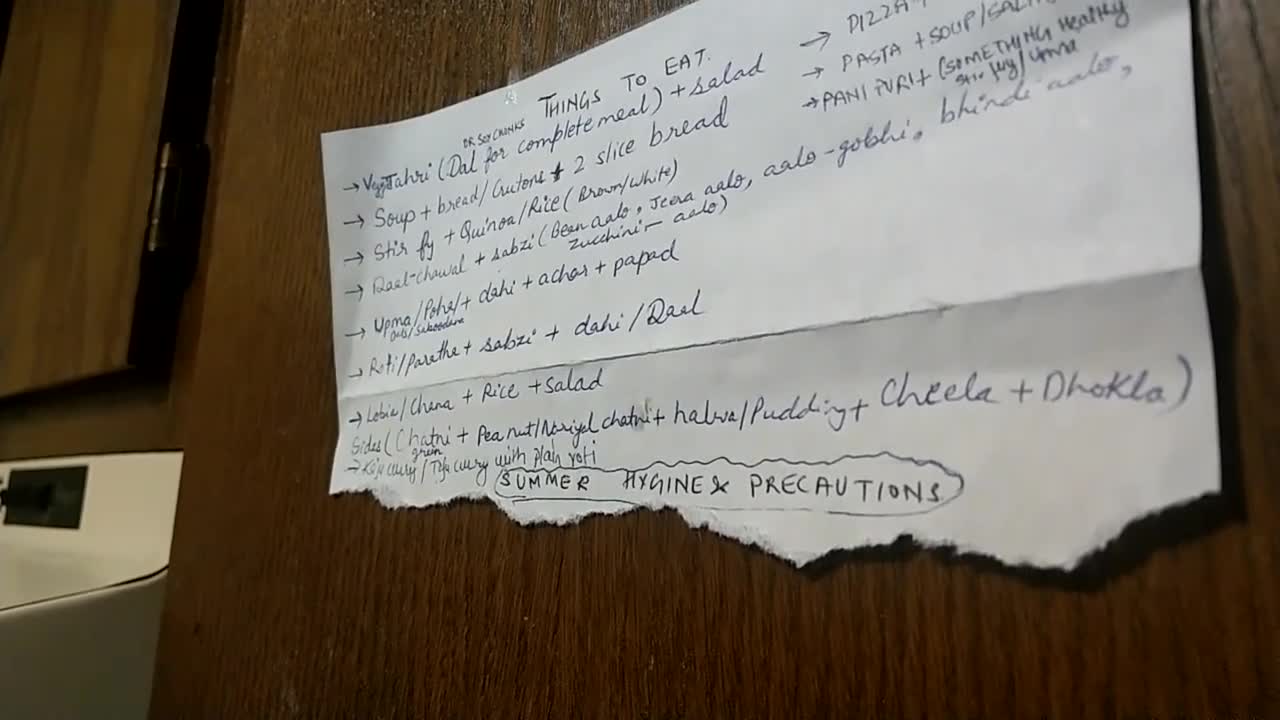 THINGS TO EAT.
OR SOY CHUNKS
→ Veggi Tahri (Dal for complete meal) + salad
→ Soup + bread/Crutons + 2 slice bread
→ Stir fy + Quinoa/Rice (Brown/White)
→ Daal-chawal + sabzi (Bean aalo, Jeera aalo, aalo-gobhi, bhindi aalo,
zucchini- aalo)
→ Upma/Poha/ + dahi + achar + papad
oats/sabodana
→ Roti/Paratha + sabzi + dahi/Daal
→ Lobia/Chana + Rice + Salad
Sides (Chatni + Peanut/Nariyel chatni + halwa/Pudding + Cheela + Dhokla)
green
→ Kaju curry/Tofu curry with plain roti
SUMMER HYGINE & PRECAUTIONS
→ PIZZA
→ PASTA + SOUP/
→ PANI PURI + (SOMETHING Healthy
stir fry/ Upma